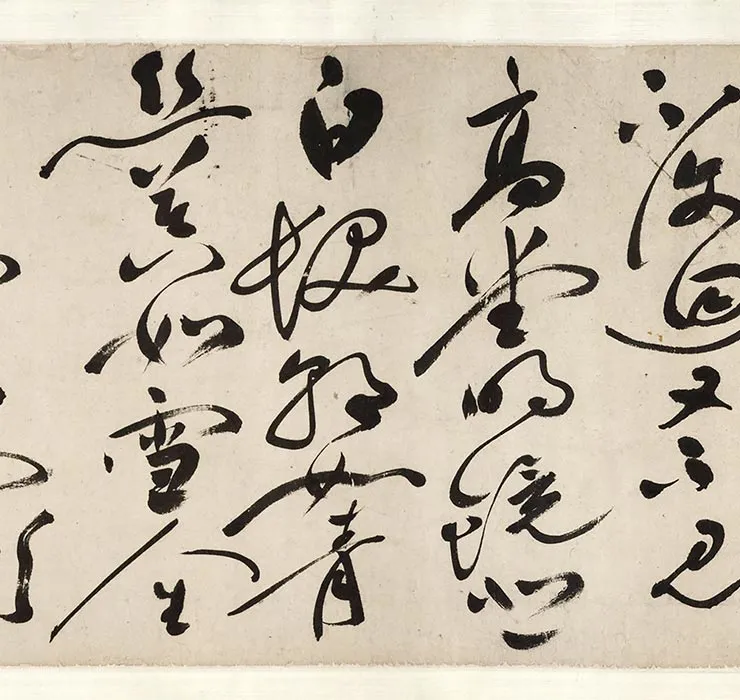 不復迴又不見
高堂明鏡悲
白髮朝如青
絲暮如雪人生